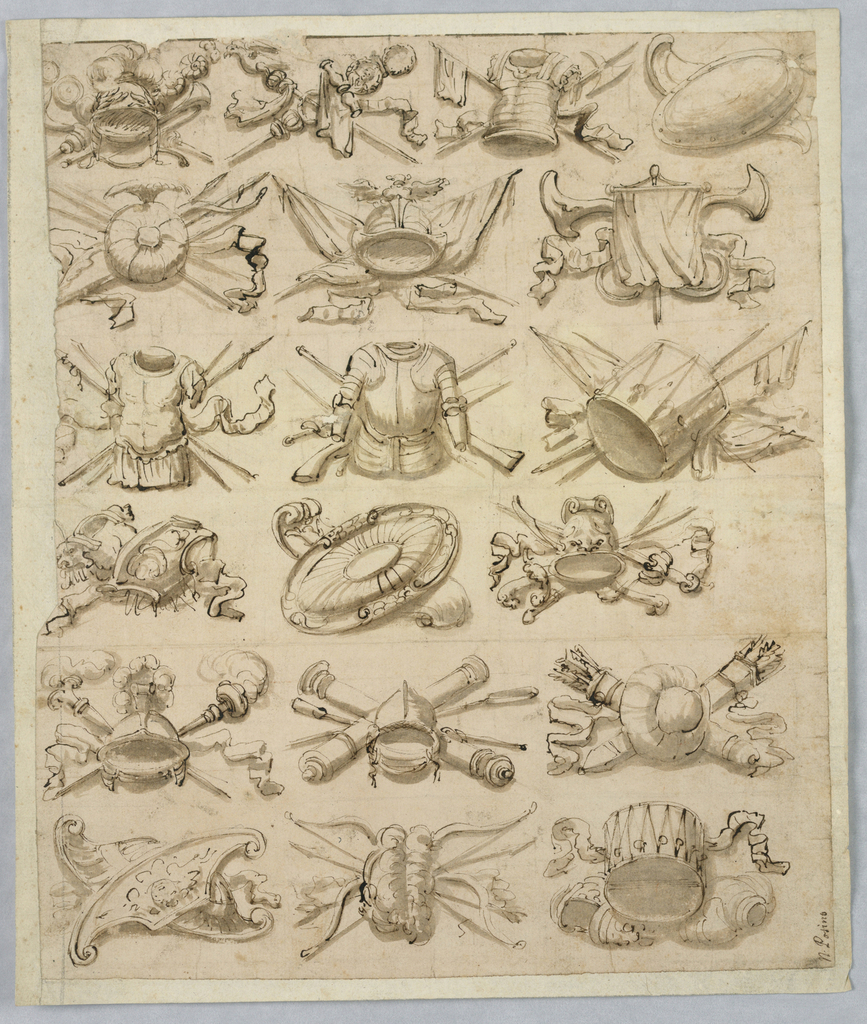 N. Posino